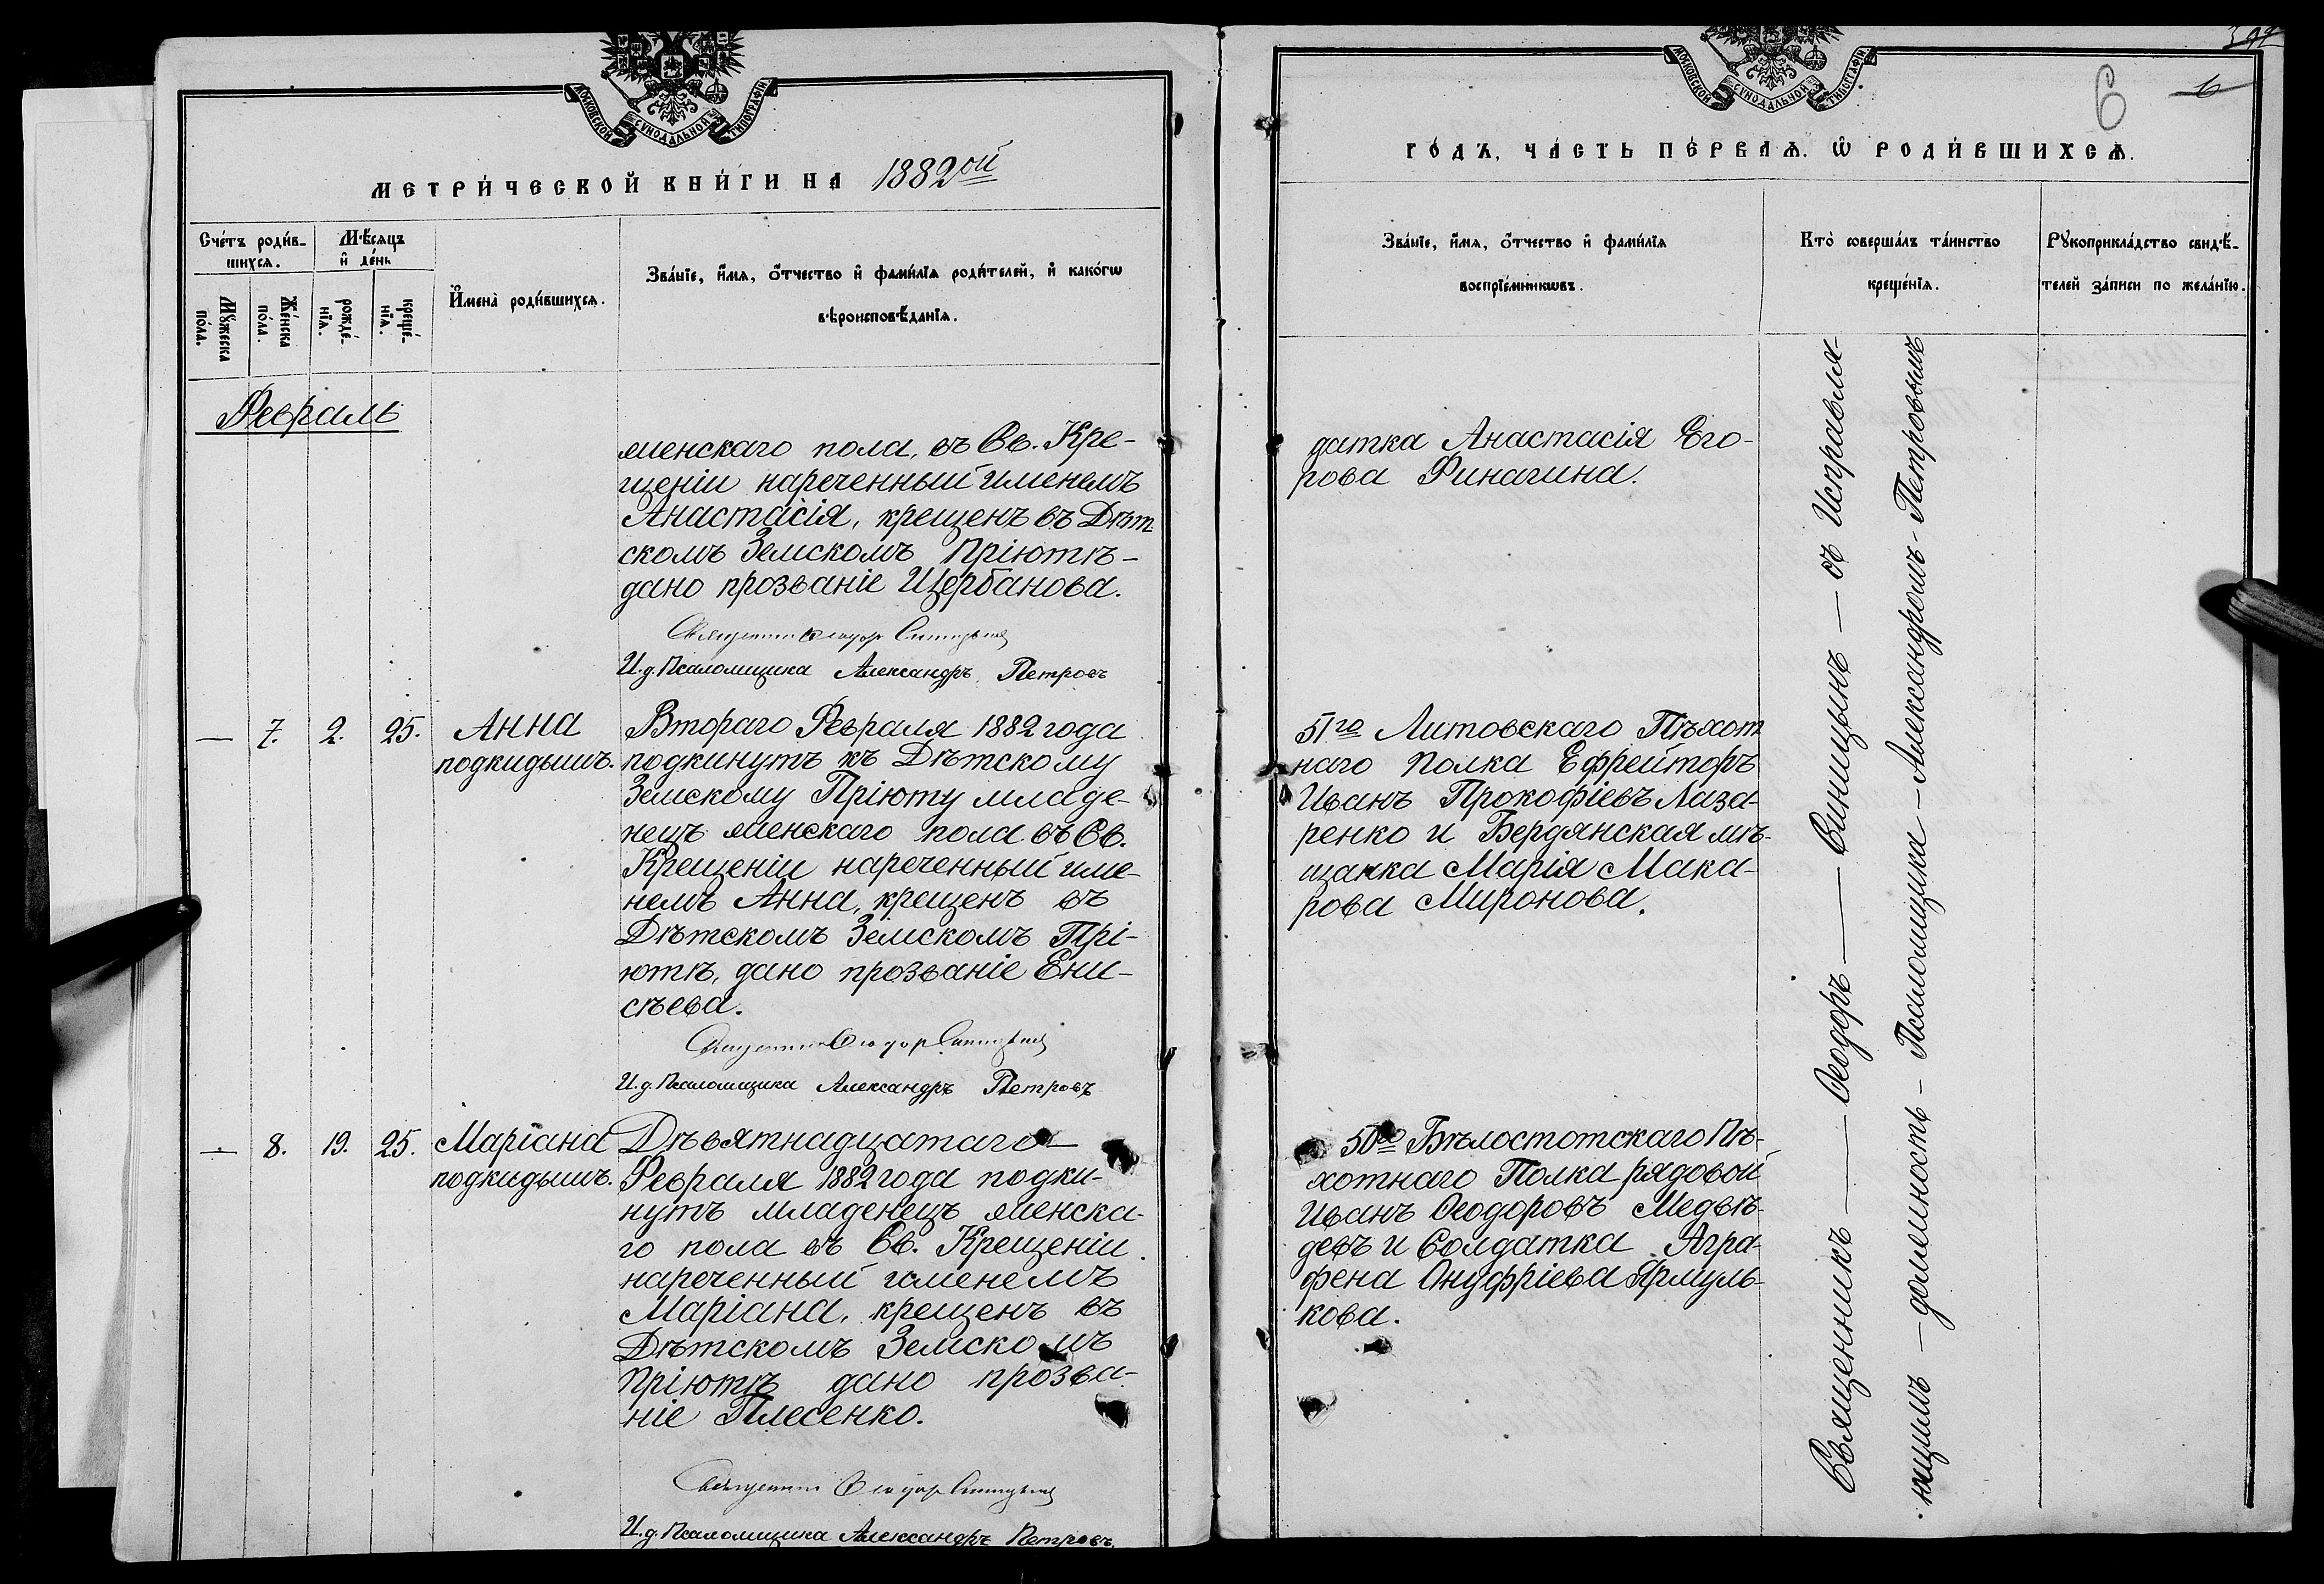 МОСКОВСКОЙ СѴНОДАЛЬНОЙ ТИПОГРАФІИ
МЕТРИ́ЧЕСКОЙ КНИ́ГИ НА 1882ой
Сче́тъ роди́в-
шихсѧ.
Мѣ́сѧцъ
и҆ де́нь
Мꙋ́жеска
по́ла.
Же́нска
по́ла.
рожде́-
нїѧ.
креще́-
нїѧ.
И҆мена̀ роди́вшихсѧ.
Зва́нїе, и҆́мѧ, ѻ҆́тчество и҆ фами́лїѧ роди́телей, и҆ како́гѡ
вѣроисповѣ́данїѧ.
Февраль
женскаго пола, въ Св. Кре-
щеніи нареченный именемъ
Анастасія, крещенъ въ Дѣт-
скомъ Земскомъ Пріютѣ-
дано прозваніе Щербанова.
Священникъ Ѳеодор Синицынъ
И.д. Псаломщика Александръ Петровъ
— 7. 2. 25. Анна
подкидышъ.
Втораго Февраля 1882 года
подкинутъ къ Дѣтскому
Земскому Пріюту младе-
нецъ женскаго пола въ Св.
Крещеніи нареченный име-
немъ Анна, крещенъ въ
Дѣтскомъ Земскомъ Прі-
ютѣ, дано прозваніе Ени-
сѣева.
Священник Ѳеодор Синицынъ
И.д. Псаломщика Александръ Петровъ
— 8. 19. 25. Маріана
подкидышъ.
Дѣвятнадцатаго —
Февраля 1882 года подки-
нутъ младенецъ женска-
го пола въ Св. Крещеніи
нареченный именемъ
Маріана, крещенъ въ
Дѣтскомъ Земскомъ
Пріютѣ дано прозва-
ніе Плесенко.
Священник Ѳеодор Синицынъ
И.д. Псаломщика Александръ Петровъ.
МОСКОВСКОЙ СѴНОДАЛЬНОЙ ТИПОГРАФІИ
6
6
ГО́ДЪ, ЧА́СТЬ ПЕ́РВАѦ. Ѡ҆ РОДИ́ВШИХСѦ.
Зва́нїе, и҆́мѧ, ѻ҆́тчество и҆ фами́лїѧ
воспрїе́мникѡвъ.
Кто̀ соверша́лъ та́инство
креще́нїѧ.
Рꙋкоприкла́дство свидѣ́-
телей за́писи по жела́нїю.
датка Анастасія Его-
рова Финагина.
51го Литовскаго Пѣхот
наго полка Ефрейторъ
Иванъ Прокофіевъ Лаза-
ренко и Бердянская мѣ-
щанка Марія Мака-
рова Миронова.
50го Бѣлостотскаго Пѣ-
хотнаго Полка рядовой
Иванъ Ѳеодоровъ Медвѣ-
девъ и Солдатка Агра-
фена Онуфріева Ярмуль-
кова.
Священникъ — Ѳеодоръ — Синицынъ — съ Исправля-
ющимъ — должность — Псаломщика — Александромъ - Петровымъ